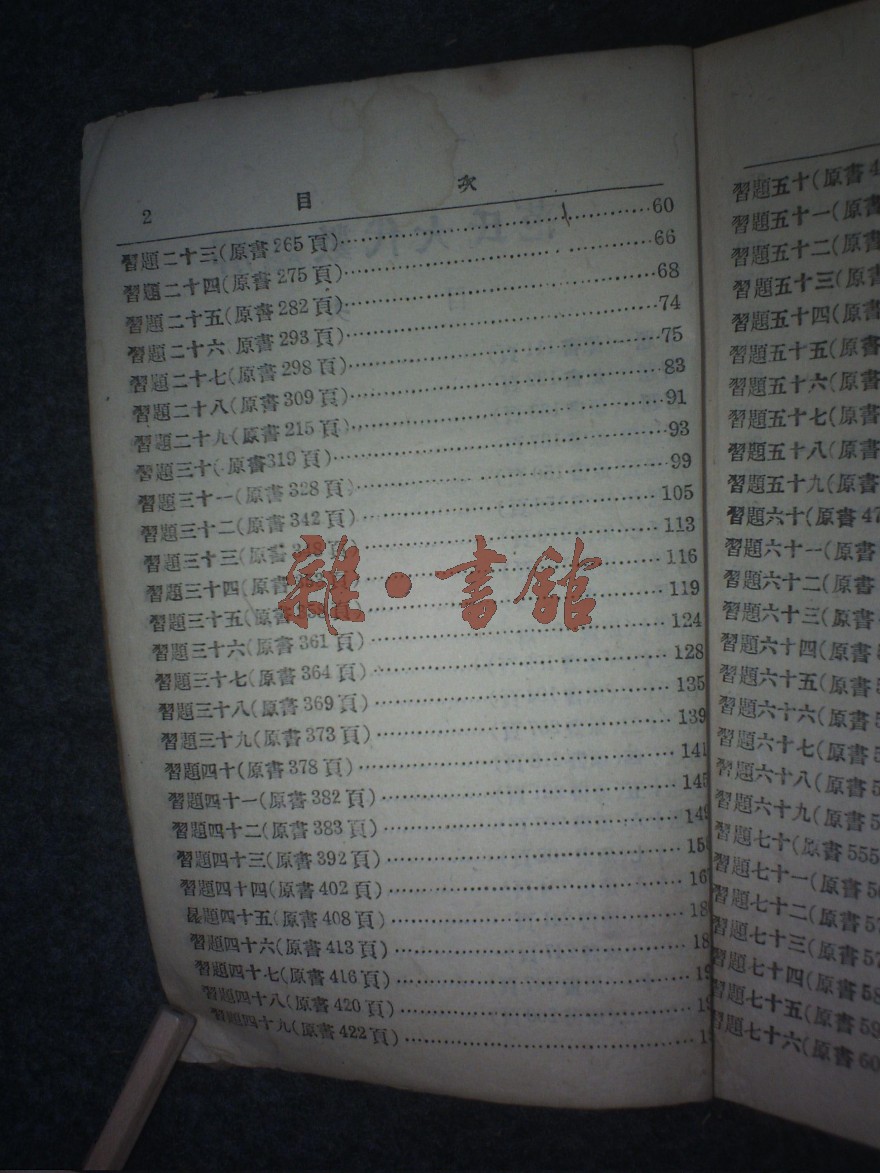 2 目 次
習題二十三(原書265頁)……60
習題二十四(原書275頁)……66
習題二十五(原書282頁)……68
習題二十六 原書293頁)……74
習題二十七(原書298頁)……75
習題二十八(原書309頁)……83
習題二十九(原書215頁)……91
習題三十(原書319頁)……93
習題三十一(原書328頁)……99
習題三十二(原書342頁)……105
習題三十三(原書 頁)……113
習題三十四(原書 頁)……116
習題三十五(原書 頁)……119
習題三十六(原書361頁)……124
習題三十七(原書364頁)……128
習題三十八(原書369頁)……135
習題三十九(原書373頁)……139
習題四十(原書378頁)……141
習題四十一(原書382頁)……145
習題四十二(原書383頁)……149
習題四十三(原書392頁)……
習題四十四(原書402頁)……
昆題四十五(原書408頁)……
習題四十六(原書413頁)……
習題四十七(原書416頁)……
習題四十八(原書420頁)……
習題四十九(原書422頁)……
雜·書館
習題五十(原書4
習題五十一(原書
習題五十二(原書
習題五十三(原書
習題五十四(原書
習題五十五(原書
習題五十六(原書
習題五十七(原書
習題五十八(原書
習題五十九(原書
習題六十(原書47
習題六十一(原書
習題六十二(原書
習題六十三(原書
習題六十四(原書
習題六十五(原書
習題六十六(原書5
習題六十七(原書5
習題六十八(原書5
習題六十九(原書5
習題七十(原書555
習題七十一(原書56
習題七十二(原書57
習題七十三(原書57
習題七十四(原書58
習題七十五(原書59
習題七十六(原書60